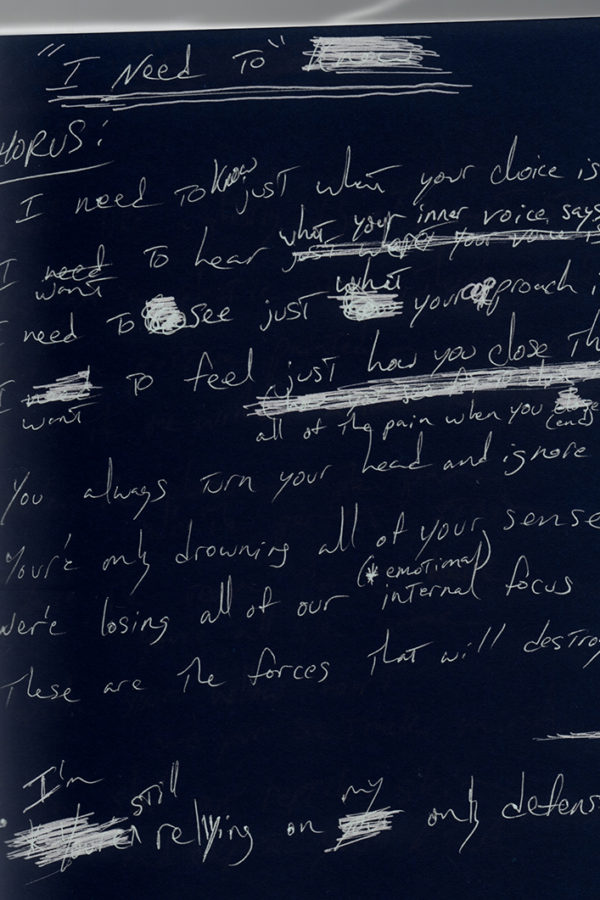 "I Need To"
HORUS:
I need to know just what your choice is
what your inner voice says
I need to hear
want
what
I need to see just your approach i
I to feel just how you close th
want
all of the pain when you
(end)
You always turn your head and ignore
You're only drowning all of your sense
(* emotional)
We're losing all of our internal focus
These are the forces that will destroy
I'm still my
relying on only defens